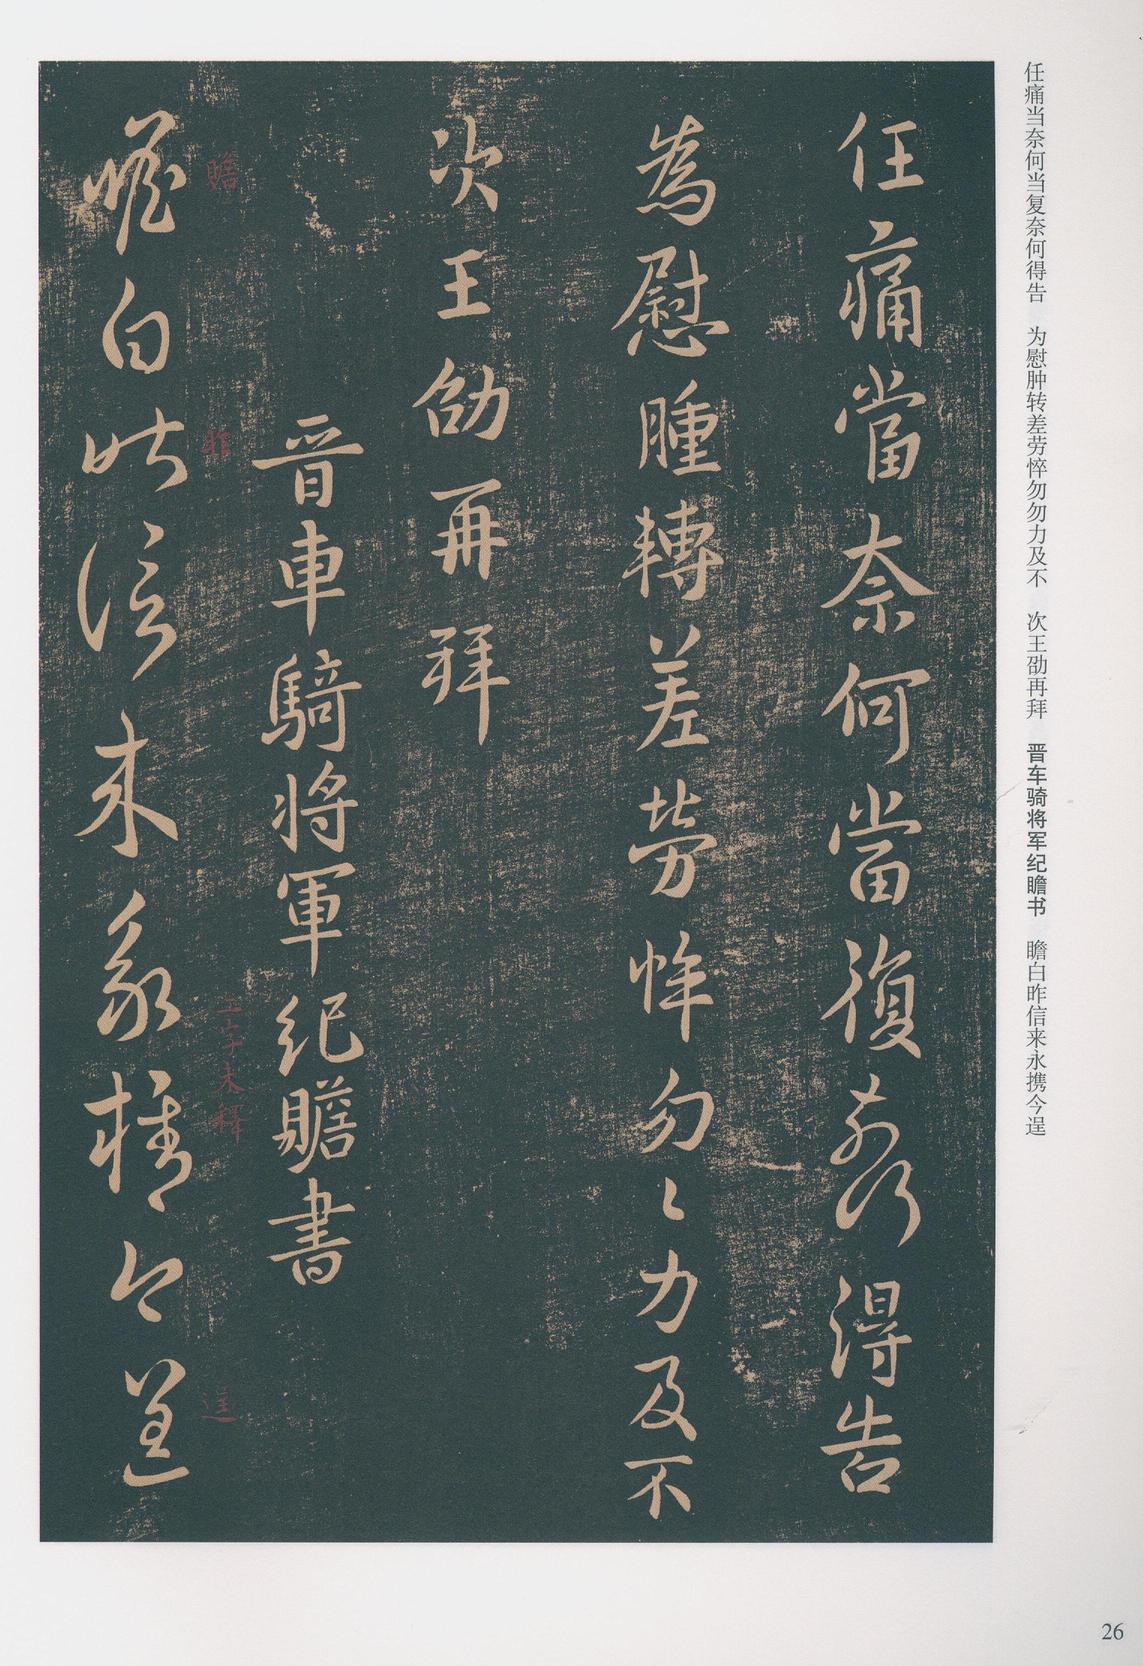 任痛当奈何当复奈何得告　为慰肿转差劳悴勿勿力及不　次王劭再拜　晋车骑将军纪瞻书　瞻白昨信来永携今逞
任痛當奈何當復奈何得告
為慰腫轉差勞悴勿〻力及不
次王劭再拜
晋車騎將軍紀瞻書
瞻
昨
二字未釋
逞
瞻白昨信来永攜今逞
26